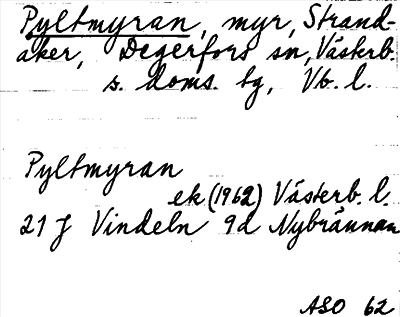 Pyltmyran, myr, Strand-
åker, Degerfors sn, Västerb.
s. doms. bg, Vb. l.
Pyltmyran
ek (1962) Västerb. l.
21 J Vindeln 9d Nybrännan
ASO 62